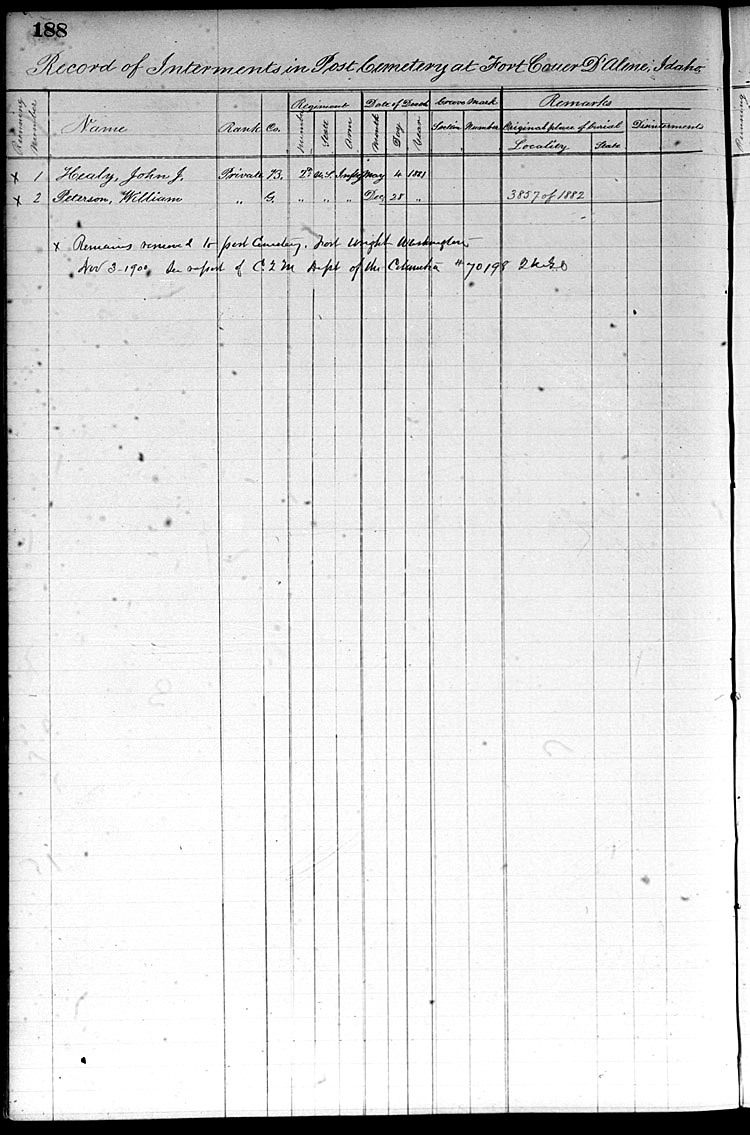 188
Record of Interments in Post Cemetery at Fort Coeur D'Alene, Idaho.
Running Number Name Rank Co. Regiment Number State Arm Date of Death Month Day Year Grave Mark Section Number Remarks Original place of burial Locality State Disinterments
x 1 Healy, John J. Private B. 2d U.S. Infty May 4 1881
x 2 Peterson, William " G. " " " Dec 28 " 3857 of 1882
x Remains removed to post Cemetery, Fort Wright Washington
Nov 3-1900 See report of C.Q.M Dept of the Columbia # 70198
Running